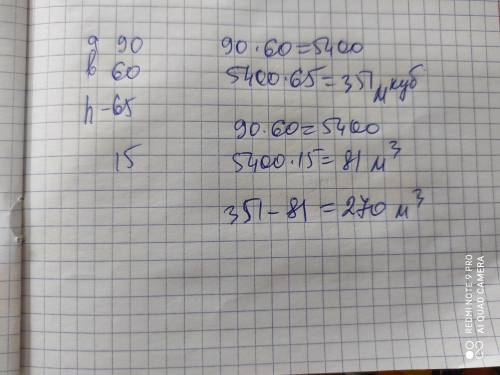 д 90
в 60
h-65
15
90·60=5400
5400·65=351 м куб
90·60=5400
5400·15=81 м³
351-81=270 м³
REDMI NOTE 9 PRO
AI QUAD CAMERA